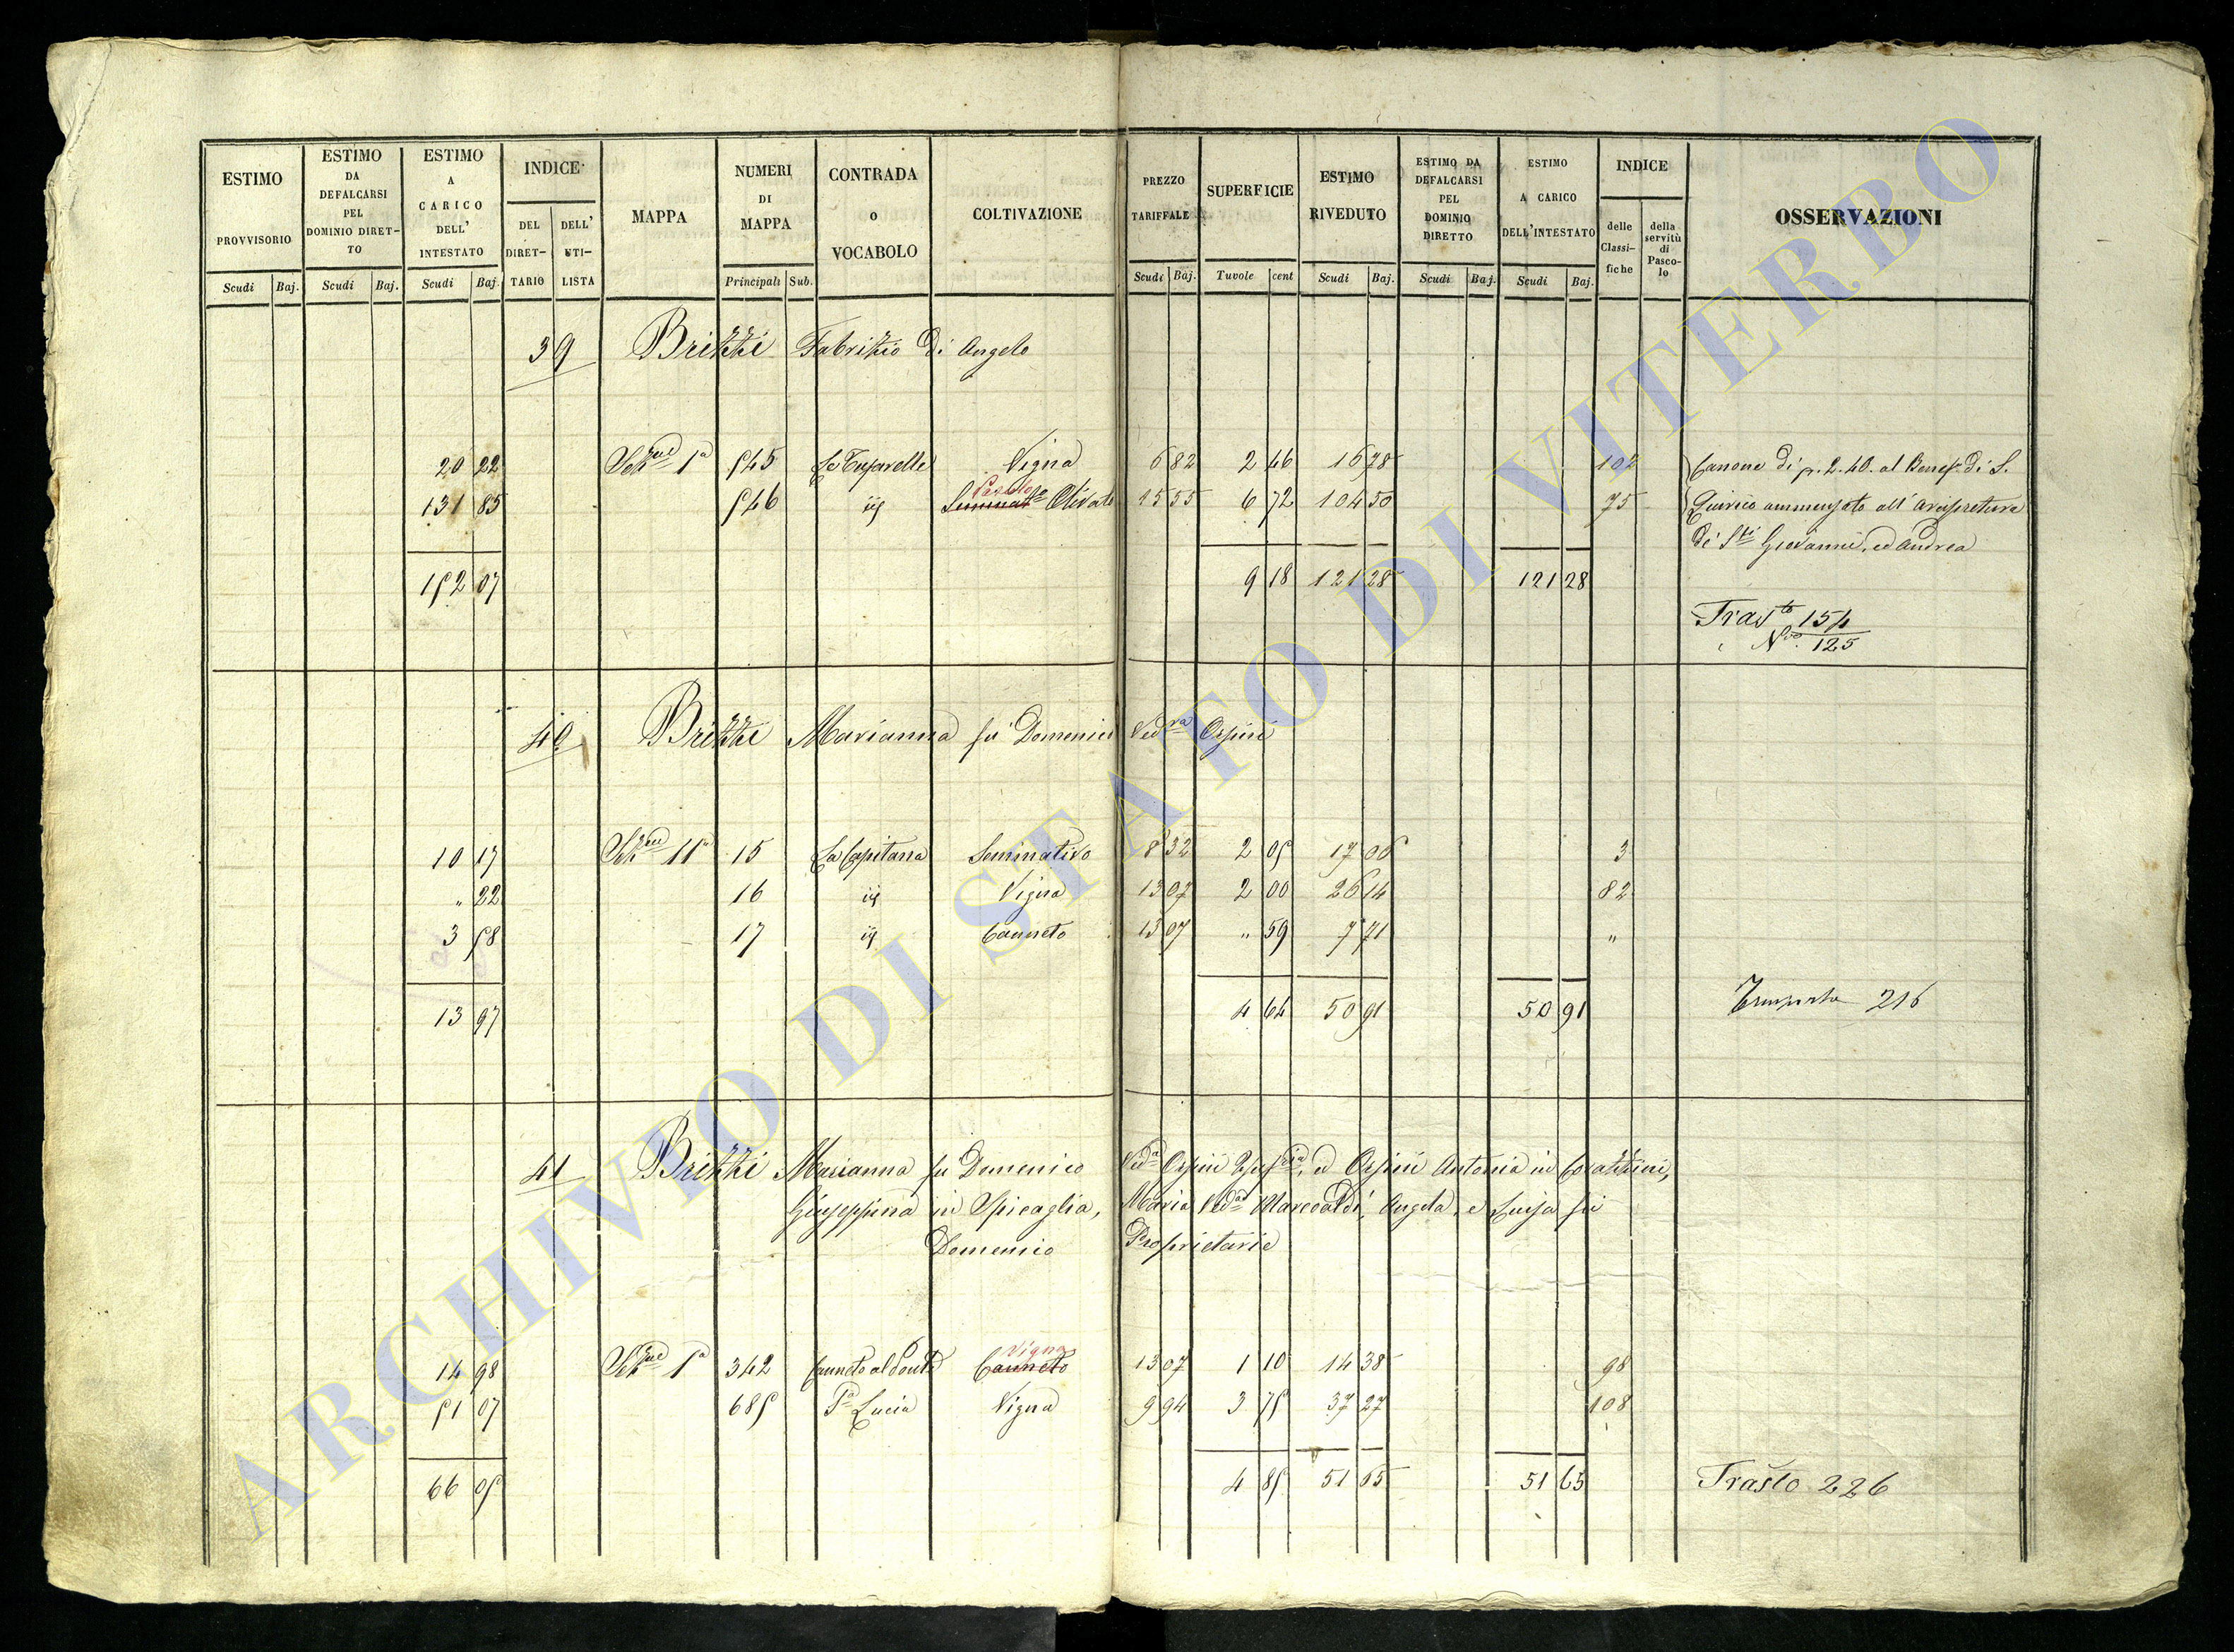 ESTIMO PROVVISORIO
ESTIMO DA DEFALCARSI PEL DOMINIO DIRET-TO
ESTIMO A CARICO DELL' INTESTATO
INDICE
DEL DIRET-TARIO
DELL' UTI-LISTA
MAPPA
NUMERI DI MAPPA
CONTRADA o VOCABOLO
COLTIVAZIONE
PREZZO TARIFFALE
SUPERFICIE
ESTIMO RIVEDUTO
ESTIMO DA DEFALCARSI PEL DOMINIO DIRETTO
ESTIMO A CARICO DELL'INTESTATO
INDICE
delle Classi-fiche
della servitù di Pasco-lo
OSSERVAZIONI
Scudi Baj. Scudi Baj. Scudi Baj. Principali Sub. Scudi Baj. Tavole cent Scudi Baj. Scudi Baj. Scudi Baj.
39 Brizzi Fabrizio di Angelo
20 22 1a 545 Vigna 6 82 2 46 16 78 102 Canone di p. 2.40. al Benef. di S.
131 85 546 iij Olivato 15 55 6 72 104 50 75 Quirico ammensato all' Arcipretura
de' Sti Giovanni, ed Andrea
152 07 9 18 121 28 121 28
Trasto 154
No. 125
40 Brizzi Marianna fu Domenico Veda Orsini
10 17 11a 15 La Capitana Seminativo 8 32 2 05 17 06 3
" 22 16 iij Vigna 13 07 2 00 26 14 82
3 58 17 iij Canneto 13 07 " 59 7 71 "
13 97 4 64 50 91 50 91 216
41 Brizzi Marianna fu Domenico Veda Orsini ed Orsini Antonia in
Giuseppina in Spicaglia, Maria Veda Marcoaldi, Angela, e Luisa fu
Domenico Proprietarie
Vigna
14 98 1a 342 Canneto al Ponte Canneto 13 07 1 10 14 38 98
51 07 685 Sa Lucia Vigna 9 94 3 75 37 27 108
66 05 4 85 51 65 51 65 Trasto 226
ARCHIVIO DI STATO DI VITERBO